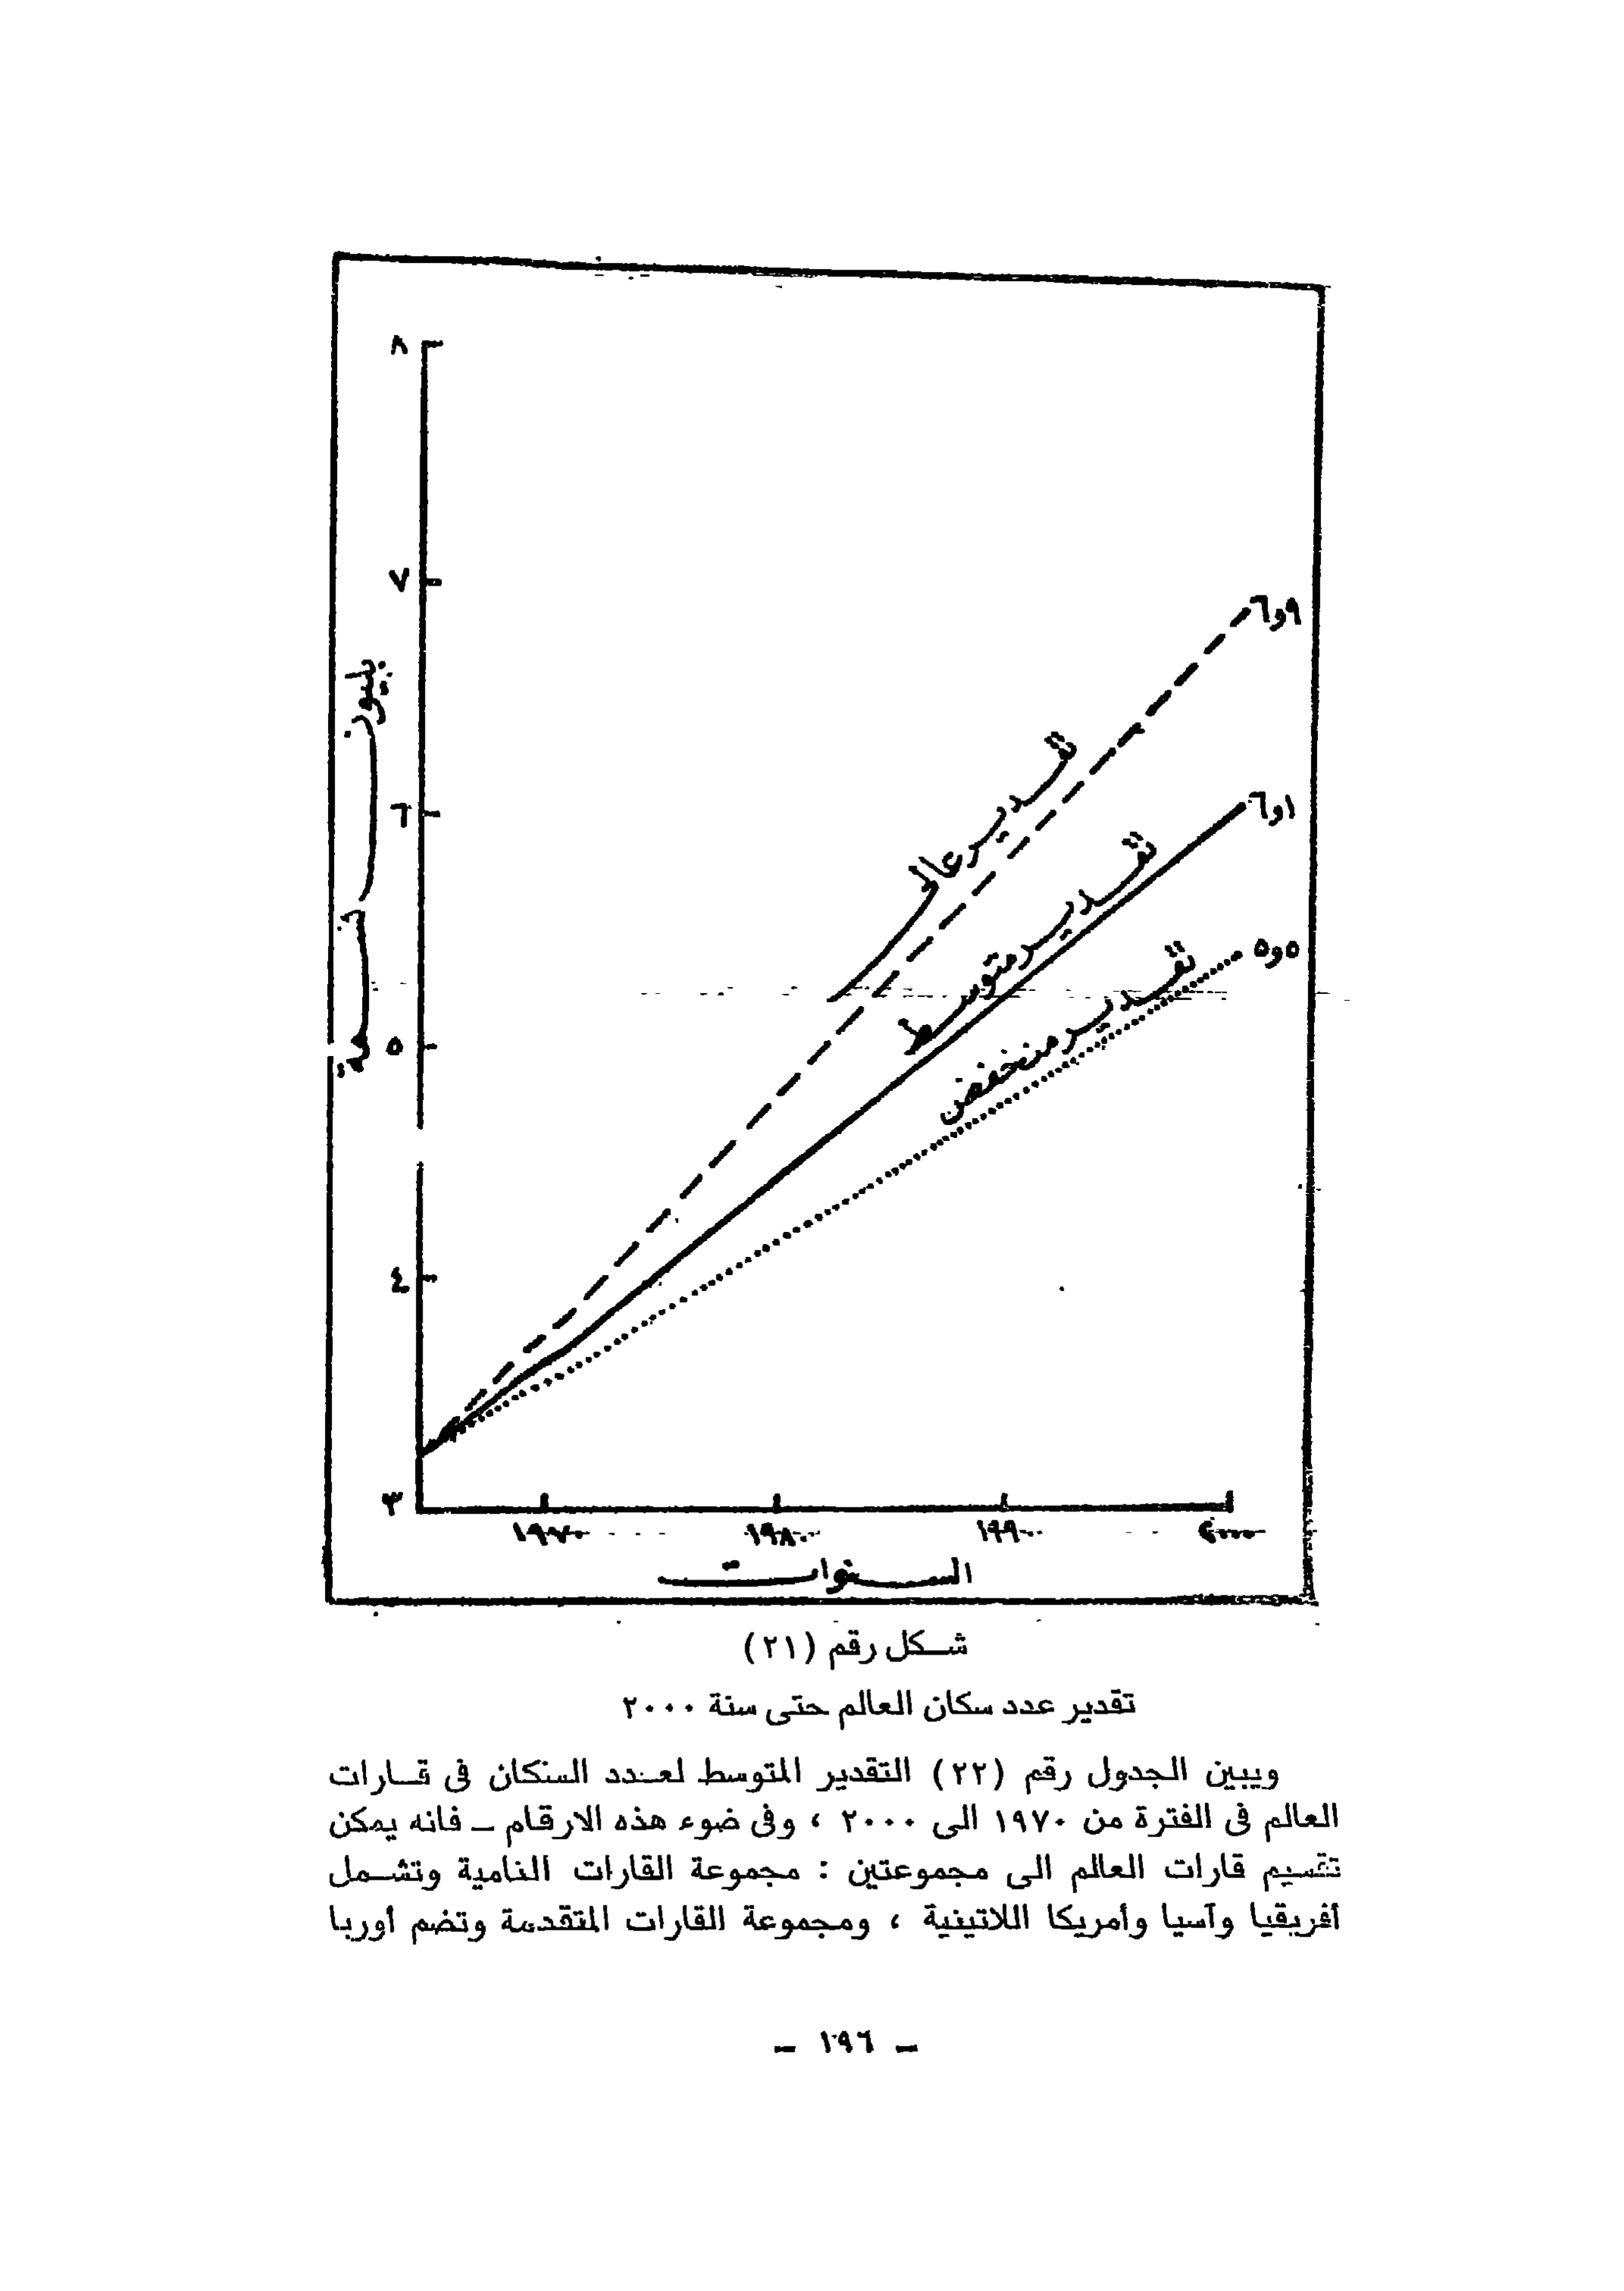 ٨
٧
٦
٥
٤
٣
بليون نسمة
٦و٩
٦و١
٥و٥
تقدير عال
تقدير متوسط
تقدير منخفض
١٩٧٠ ١٩٨٠ ١٩٩٠ ٢٠٠٠
السنوات
شكل رقم (٢١)
تقدير عدد سكان العالم حتى سنة ٢٠٠٠
ويبين الجدول رقم (٢٢) التقدير المتوسط لعدد السكان فى قارات
العالم فى الفترة من ١٩٧٠ الى ٢٠٠٠ ، وفى ضوء هذه الارقام – فانه يمكن
تقسيم قارات العالم الى مجموعتين : مجموعة القارات النامية وتشمل
أفريقيا وآسيا وأمريكا اللاتينية ، ومجموعة القارات المتقدمة وتضم أوربا
– ١٩٦ –